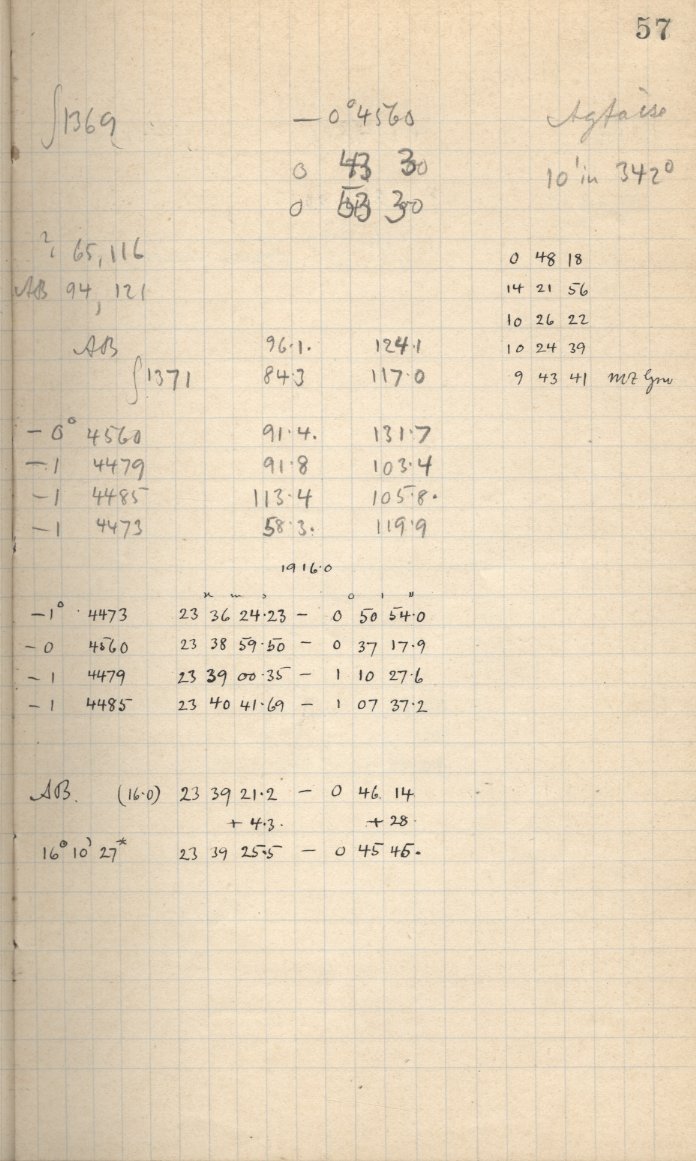 57
∫1369 −0°4560 Aglaise
0 43 30 10' in 342°
0 53 30
65,116
AB 94, 121
0 48 18
14 21 56
10 26 22
10 24 39
9 43 41
AB 96.1. 124.1
∫1371 84.3 117.0
−0° 4560 91.4. 131.7
−1 4479 91.8 103.4
−1 4485 113.4 105.8.
−1 4473 58.3. 119.9
1916.0
h m s ° ' "
−1° 4473 23 36 24.23 − 0 50 54.0
−0 4560 23 38 59.50 − 0 37 17.9
−1 4479 23 39 00.35 − 1 10 27.6
−1 4485 23 40 41.69 − 1 07 37.2
AB. (16.0) 23 39 21.2 − 0 46 14
+ 4.3. + 28.
23 39 25.5 − 0 45 46.